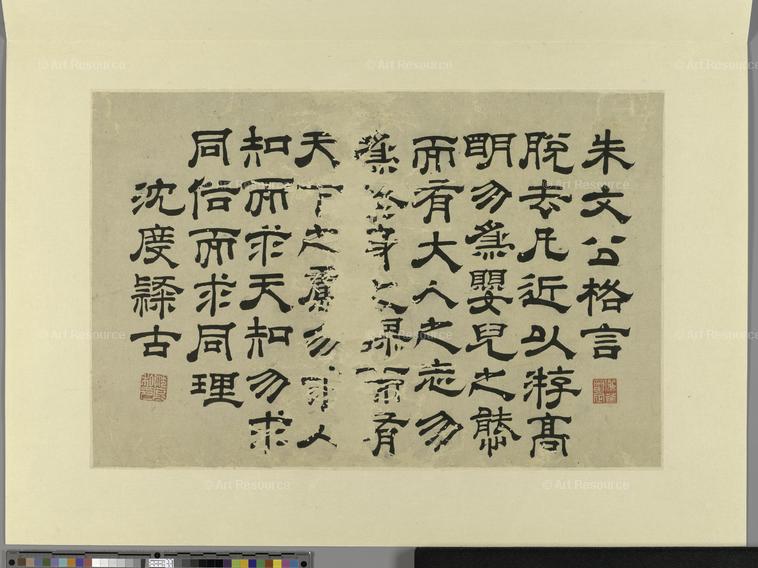 朱文公格言
脫去凡近以游高
明勿為嬰兒之態
而有大人之志勿
為終身之謀而有
天下之慮勿求人
知而求天知勿求
同俗而求同理
沈度隸古
© Art Resource
© Art Resource
© Art Resource
© Art Resource
© Art Resource
© Art Resource
© Art Resource
© Art Resource
© Art Resource
© Art Resource
© Art Resource